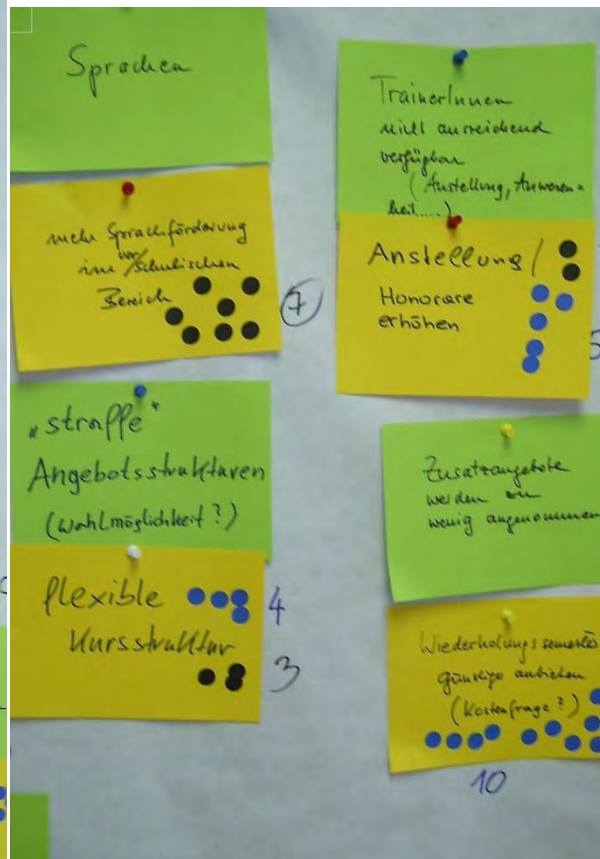 Sprachen
mehr Sprachförderung
im vor/schulischen
Bereich
7
„straffe"
Angebotsstrukturen
(Wahlmöglichkeit?)
flexible
Kursstruktur
4
3
TrainerInnen
nicht ausreichend
verfügbar
(Anstellung, Anwesen=
heit....)
Anstellung/
Honorare
erhöhen
5
Zusatzangebote
werden zu
wenig angenommen
Wiederholungssemester
günstige anbieten
(Kostenfrage?)
10